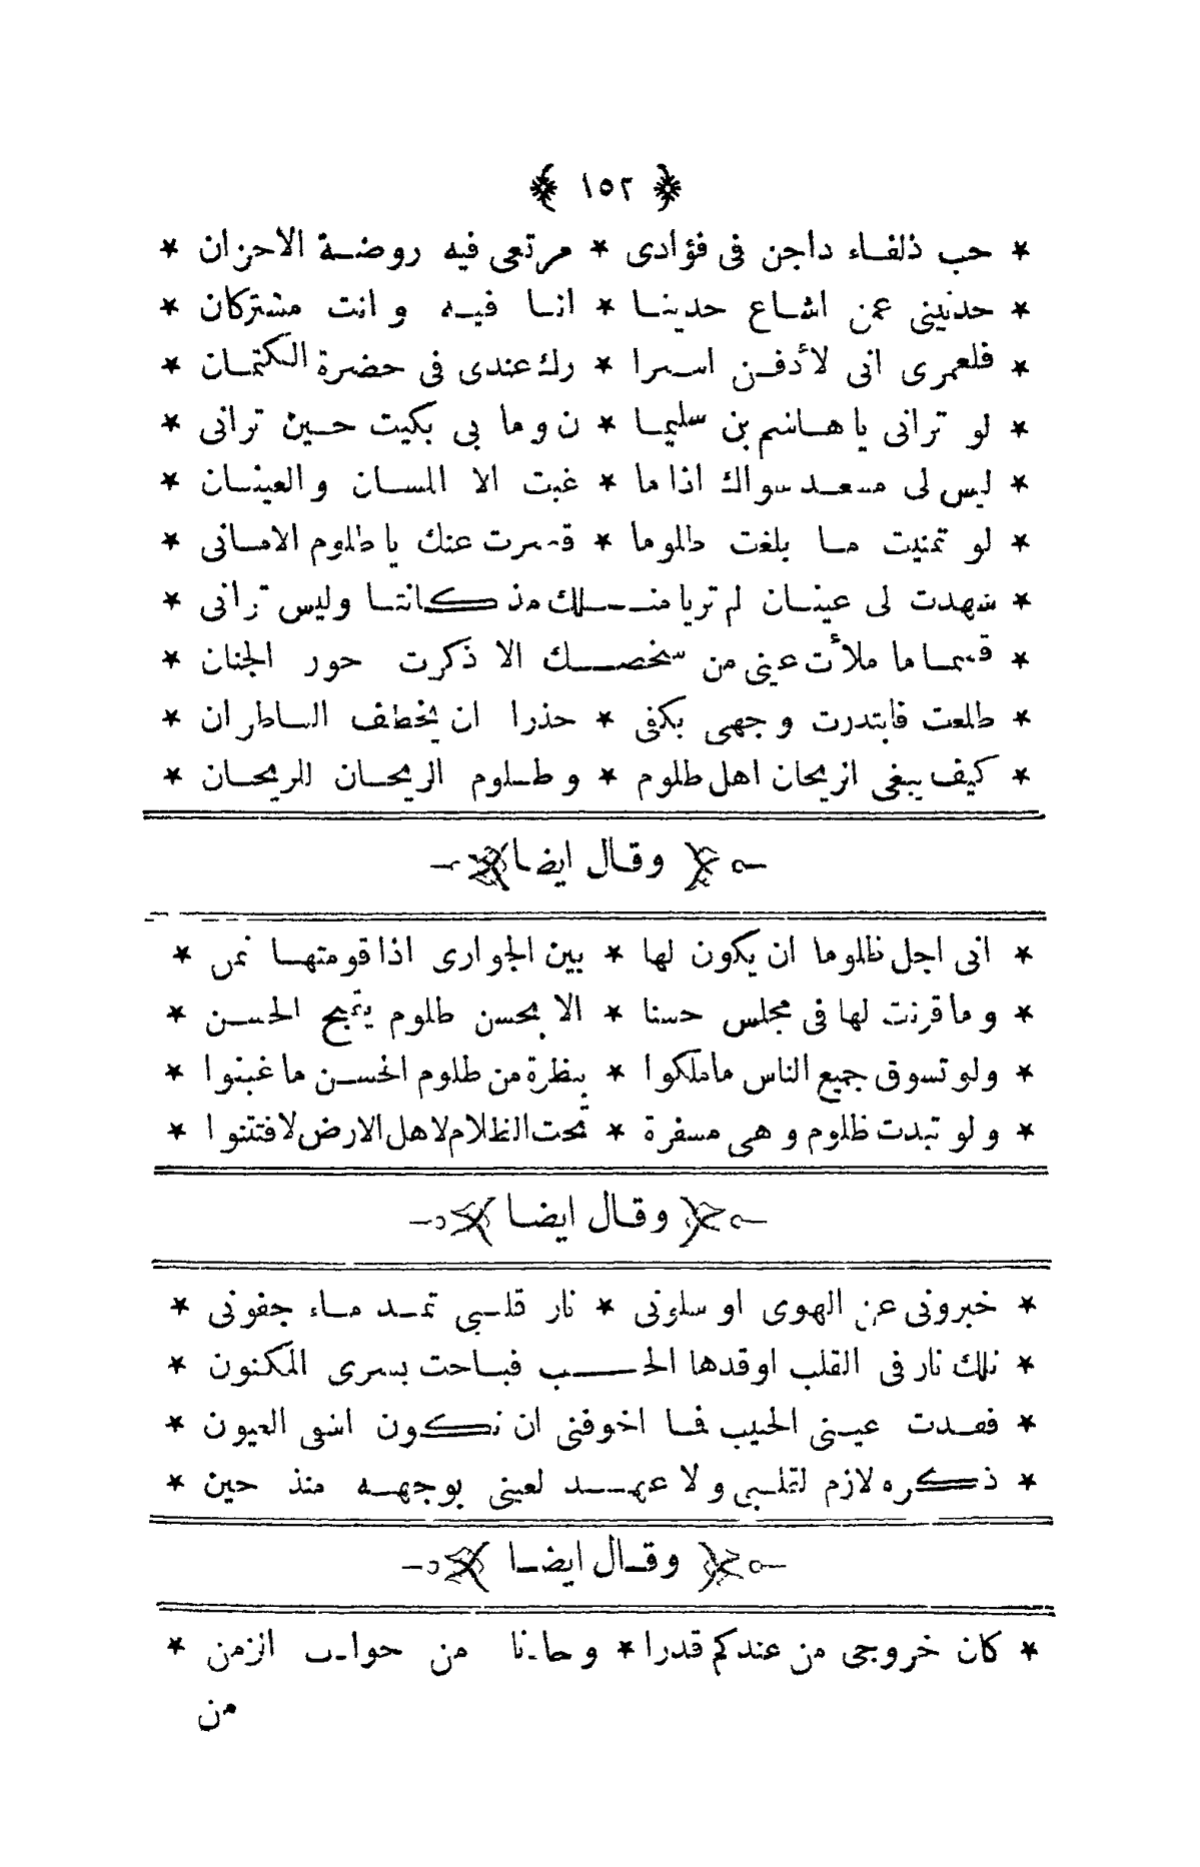 ﴿ ١٥٢ ﴾
* حب ذلفاء داجن فى فؤادى * مرتعى فيه روضة الاحزان *
* حدثينى عمن اشاع حديثنا * انا فيه وانت مشتركان *
* فلعمرى انى لأدفن اسرا * رك عندى فى حضرة الكتمان *
* لو ترانى يا هاشم بن سليما * ن وما بى بكيت حين ترانى *
* ليس لى مسعد سواك اذا ما * غبت الا اللسان والعينان *
* لو تمنيت ما بلغت ظلوما * قصرت عنك يا ظلوم الامانى *
* شهدت لى عينان لم تريا منــلك مذ كانتا وليس ترانى *
* قسما ما ملأت عينى من شخصــك الا ذكرت حور الجنان *
* طلعت فابتدرت وجهى بكفى * حذرا ان يخطف الناظران *
* كيف يبغى الريحان اهل ظلوم * وظلوم الريحان للريحان *
وقال ايضا
* انى اجل ظلوما ان يكون لها * بين الجوارى اذا قومتها ثمن *
* وما قرنت لها فى مجلس حسنا * الا بحسن ظلوم يقبح الحسن *
* ولو تسوق جميع الناس ما ملكوا * بنظرة من ظلوم الحسن ما غبنوا *
* ولو تبدت ظلوم وهى مسفرة * تحت الظلام لاهل الارض لافتتنوا *
وقال ايضا
* خبرونى عن الهوى او سلونى * نار قلبى تمد ماء جفونى *
* تلك نار فى القلب اوقدها الحــب فباحت بسرى المكنون *
* فقدت عينى الحبيب فما اخوفنى ان تكون اشقى العيون *
* ذكره لازم لقلبى ولا عهــد لعينى بوجهه منذ حين *
وقال ايضا
* كان خروجى من عندكم قدرا * وحادثا من حوادث الزمن *
من